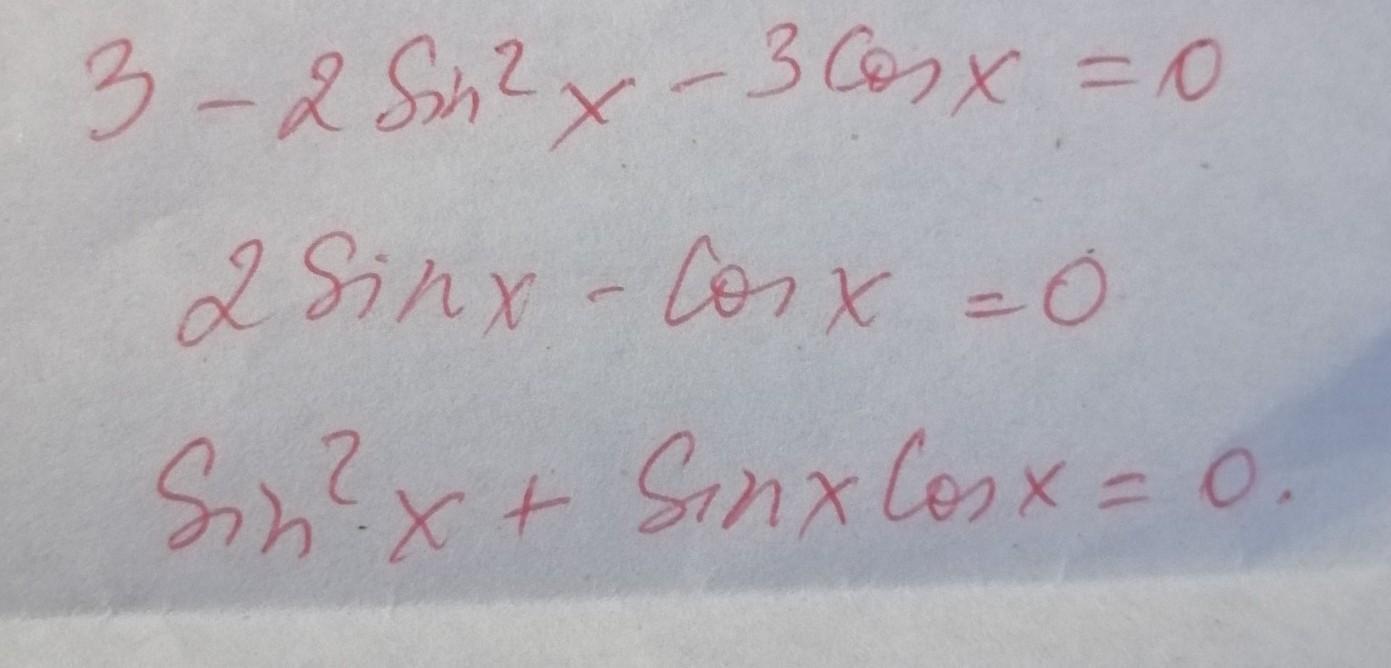 3 - 2 Sin²x - 3 Cos x = 0
2 Sin x - Cos x = 0
Sin²x + Sin x Cos x = 0.